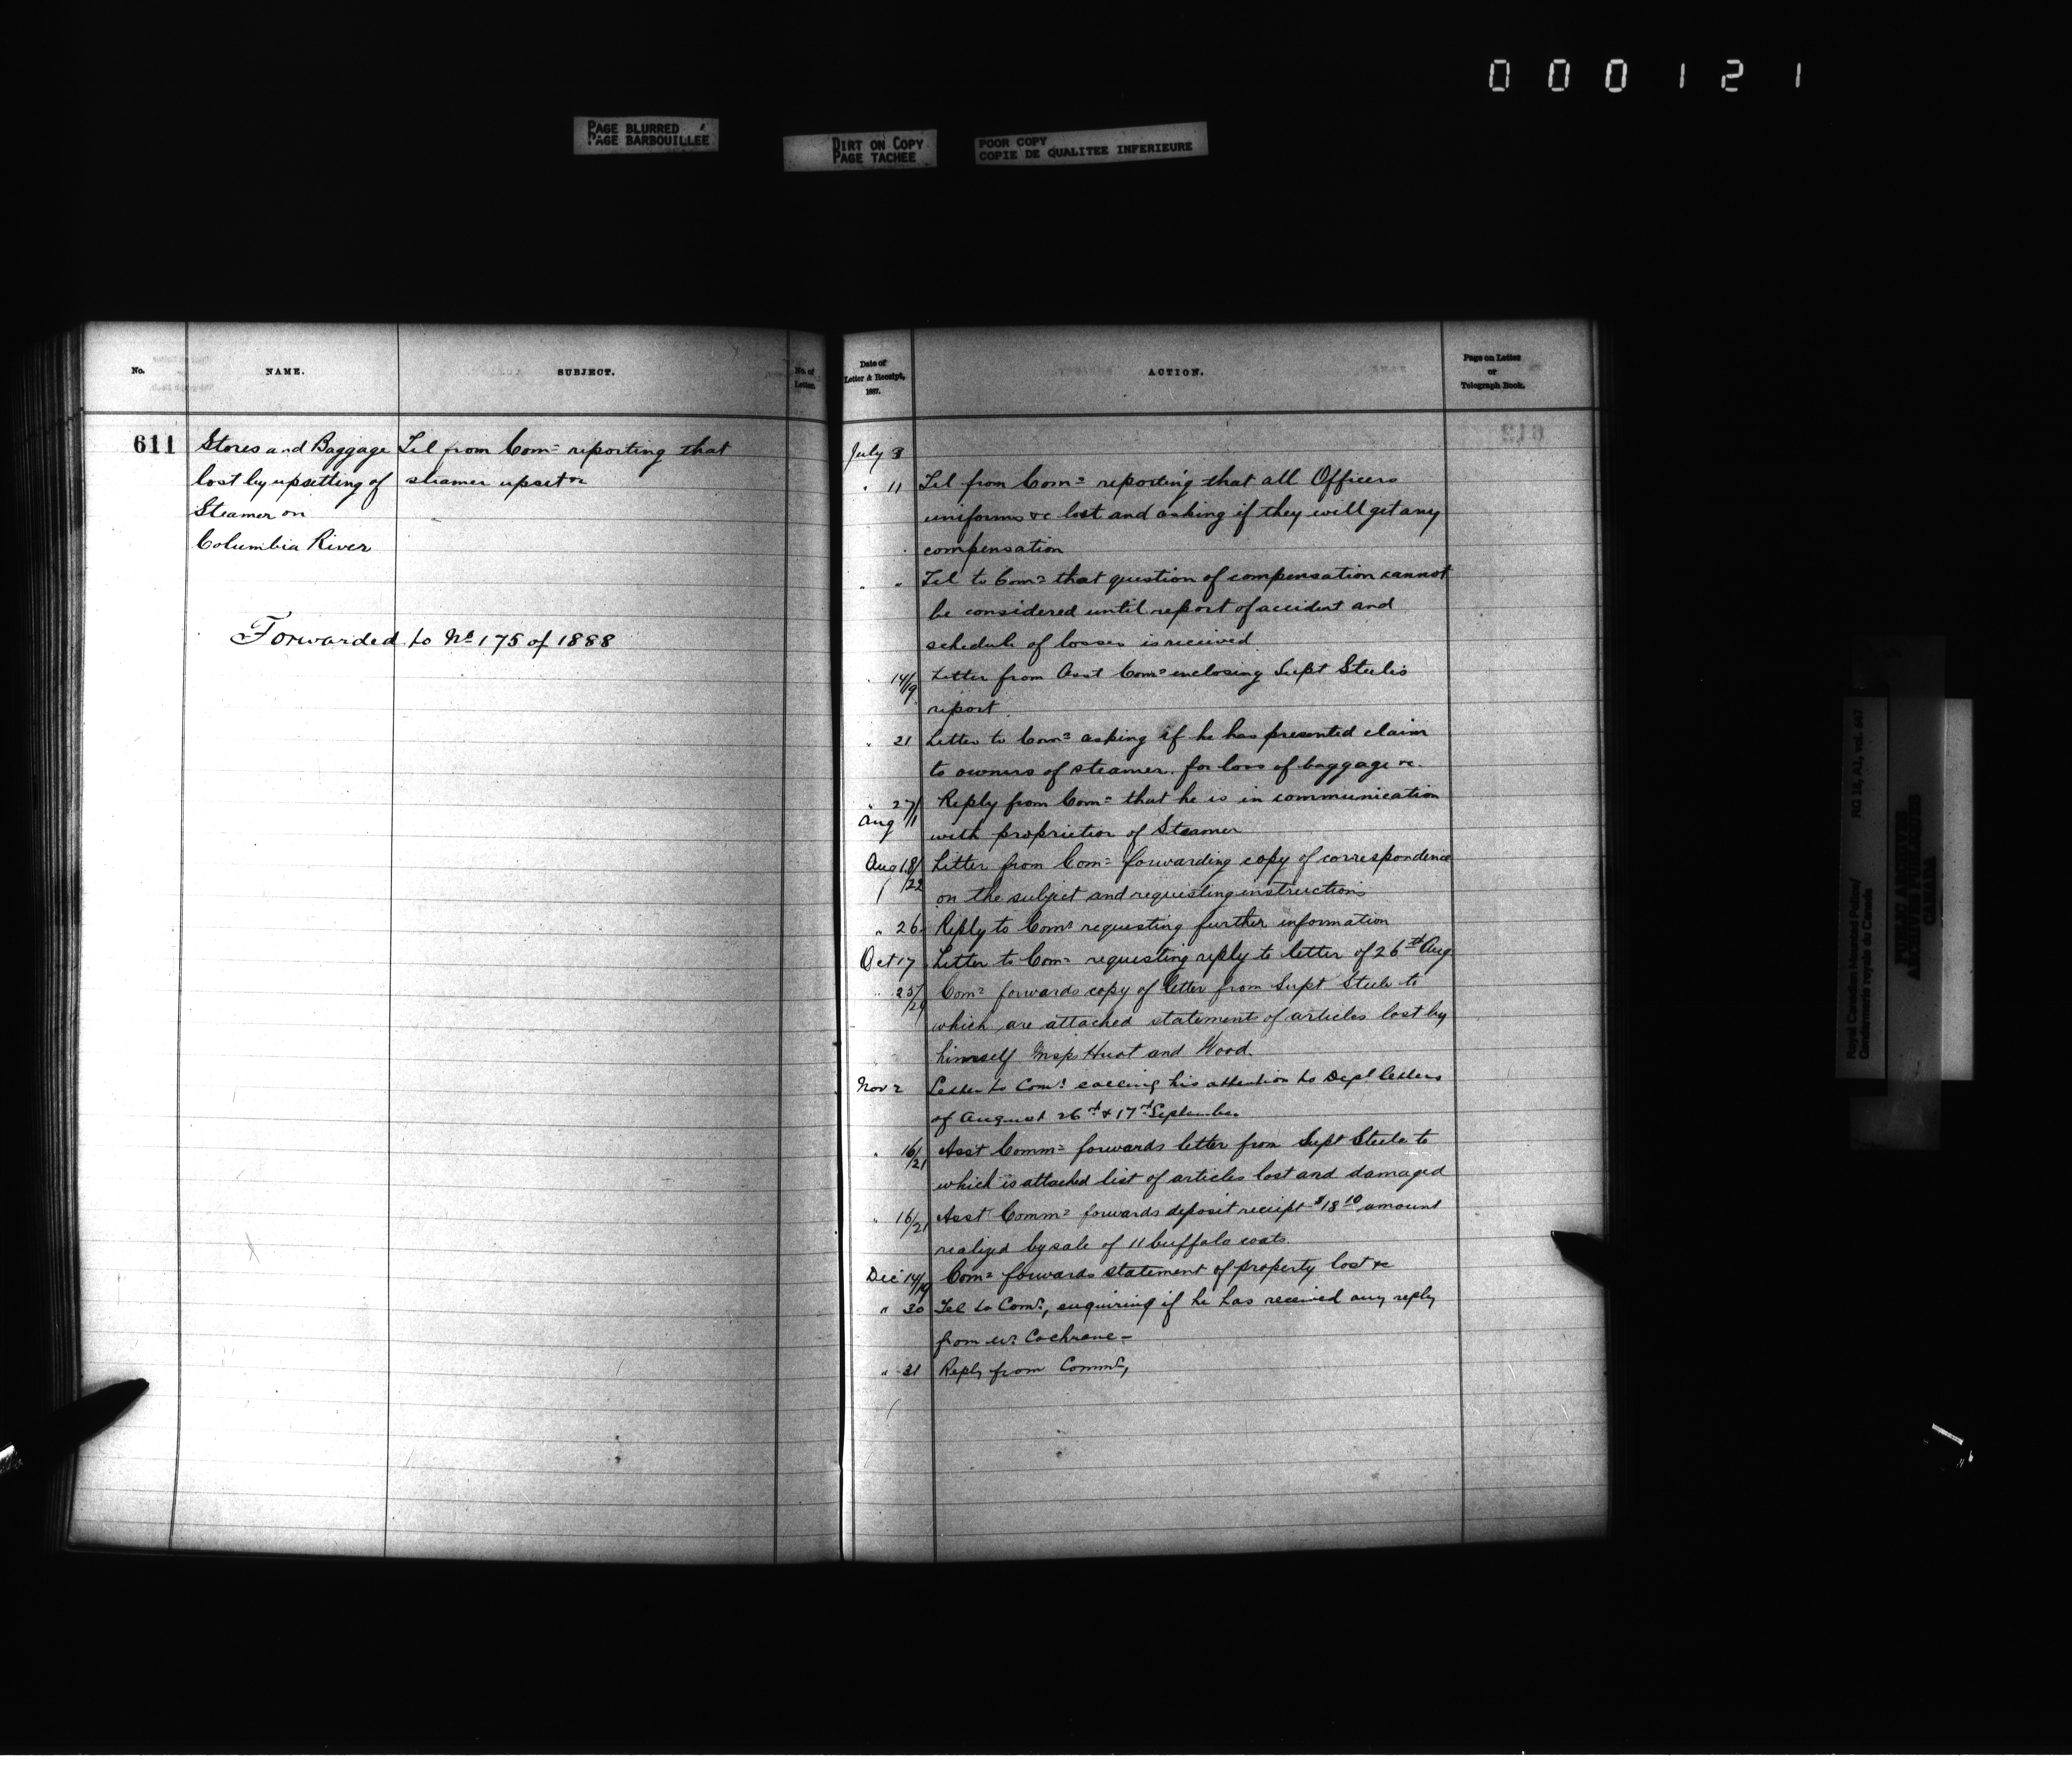 000121
PAGE BLURRED
PAGE BARBOUILLEE
DIRT ON COPY
PAGE TACHEE
POOR COPY
COPIE DE QUALITEE INFERIEURE
No.
NAME.
SUBJECT.
No. of
Letter.
611
Stores and Baggage
lost by upsetting of
Steamer on
Columbia River
Tel from Comr reporting that
steamer upset &c
Forwarded to No 175 of 1888
Date of
Letter & Receipt,
1887.
ACTION.
Page on Letter
or
Telegraph Book.
July 8
" 11 Tel from Comr reporting that all Officers
uniforms &c lost and asking if they will get any
compensation
" " Tel to Comr that question of compensation cannot
be considered until report of accident and
schedule of losses is received
" 14/19 Letter from Asst Comr enclosing Supt Steeles
report
" 21 Letter to Comr asking if he has presented claim
to owners of steamer for loss of baggage &c.
" 27/ Reply from Comr that he is in communication
Aug /1 with proprietor of Steamer
Aug 18/ Letter from Comr forwarding copy of correspondence
/22 on the subject and requesting instructions
" 26 Reply to Comr requesting further information
Oct 17 Letter to Comr requesting reply to letter of 26th Aug
" 25/ Comr forwards copy of letter from Supt Steele to
which are attached statements of articles lost by
himself Insps Huot and Wood.
Nov 2 Letter to Comr calling his attention to Dept letters
of August 26th & 17th September
" 16/21 Asst Commr forwards letter from Supt Steele to
which is attached list of articles lost and damaged
" 16/21 Asst Commr forwards deposit receipt $18 10 amount
realized by sale of 11 buffalo coats.
Dec 14/19 Comr forwards statement of property lost &c
" 30 Tel to Comr, enquiring if he has received any reply
from Mr Cochrane -
" 31 Reply from Commr,
Royal Canadian Mounted Police/
Gendarmerie royale du Canada
RG 18, A1, vol. 647
PUBLIC ARCHIVES
ARCHIVES PUBLIQUES
CANADA